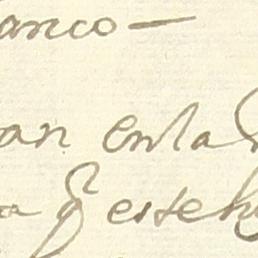 anco —
an enla
a q̃ este